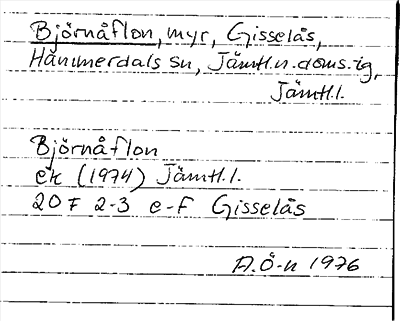 Björnåflon, myr, Gisselås,
Hammerdals sn, Jämtl.n.doms.ig,
Jämtl.l.
Björnåflon
ek (1974) Jämtl.l.
20 F 2-3 e-f Gisselås
A.Ö-n 1976